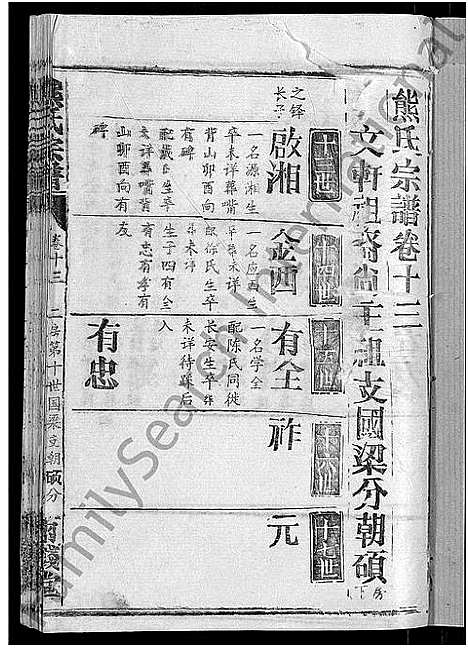 熊氏宗譜卷十三
文軒祖裔尚主祖支國梁分朝碩
下房
十三世
十四世
十五世
十六世
十七世
之鐸
長子
啟湘
一名源湘生
卒未詳葬嘴
背山卯酉向
有碑
配戴氏生卒
未詳葬嘴背
山卯酉向有
碑
金酉
一名應酉生
卒葬未詳
配徐氏生卒
葬未詳
生子四有全
有忠有孝有
友
有全
一名學全
配陳氏同徙
長安生卒葬
未詳待歸后
入
祚
元
有忠
熊氏宗譜
卷十三
二房第十世国梁支朝碩分
FamilySearch International